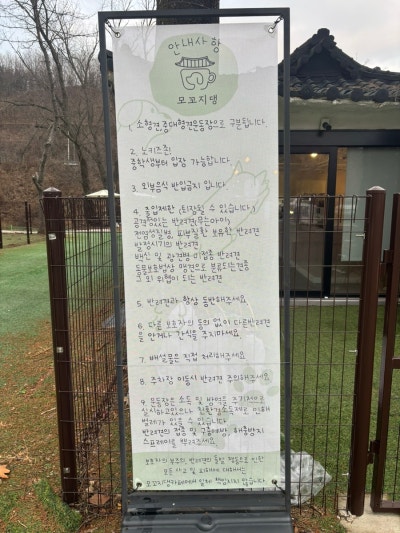 안내사항
모꼬지댕
1. 소형견,중대형견운동장으로 구분됩니다
2. 노키즈존!
중학생부터 입장 가능합니다
3. 외부음식 반입금지 입니다
4. 출입제한 (퇴장될 수 있습니다.)
공격성있는 반려견(무는아이)
전염성질병, 피부질환 보유한 반려견
발정시기의 반려견
백신 및 광견병 미접종 반려견
동물보호법상 맹견으로 분류되는견종
그 외 위협이 되는 반려견
5. 반려견과 항상 동반해주세요
6. 다른 보호자의 동의 없이 다른반려견
을 안거나 간식을 주지마세요
7. 배설물은 직접 처리해주세요
8. 주차장 이동시 반려견 주의해주세요
9. 운동장은 소독 및 방역을 주기적으로
실시하고있으나 친환경소독제로 인해
벌레가 있을 수 있습니다
반려견의 접종 및 구충예방, 해충방지
스프레이를 뿌려주세요
보호자의 부주의, 반려견의 돌발 행동으로 인한
모든 사고 및 피해에 대해서는
모꼬지댕카페에서 일체 책임지지 않습니다